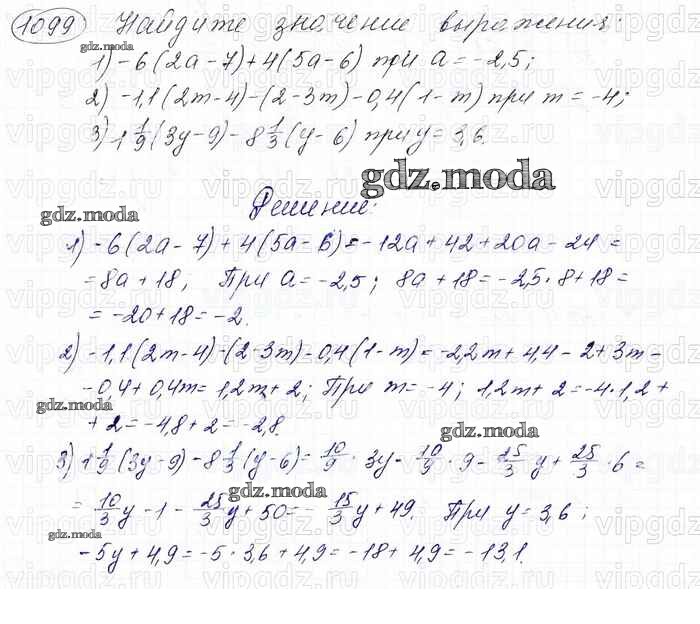 1099 Найдите значение выражения:
1) -6(2a-7)+4(5a-6) при a=-2,5;
2) -1,1(2m-4)-(2-3m)-0,4(1-m) при m=-4;
3) 1 1/9(3y-9)-8 1/3(y-6) при y=3,6.
gdz.moda
gdz.moda
gdz.moda
Решение:
1) -6(2a-7)+4(5a-6)=-12a+42+20a-24=
=8a+18; При a=-2,5; 8a+18=-2,5·8+18=
=-20+18=-2.
2) -1,1(2m-4)-(2-3m)-0,4(1-m)=-2,2m+4,4-2+3m-
-0,4+0,4m=1,2m+2; При m=-4; 1,2m+2=-4·1,2+
gdz.moda
+2=-4,8+2=-2,8.
gdz.moda
3) 1 1/9(3y-9)-8 1/3(y-6)=10/9·3y-10/9·9-25/3y+25/3·6=
gdz.moda
=10/3y-1-25/3y+50=-15/3y+49. При y=3,6;
-5y+4,9=-5·3,6+4,9=-18+4,9=-13,1.
vipgdz.ru